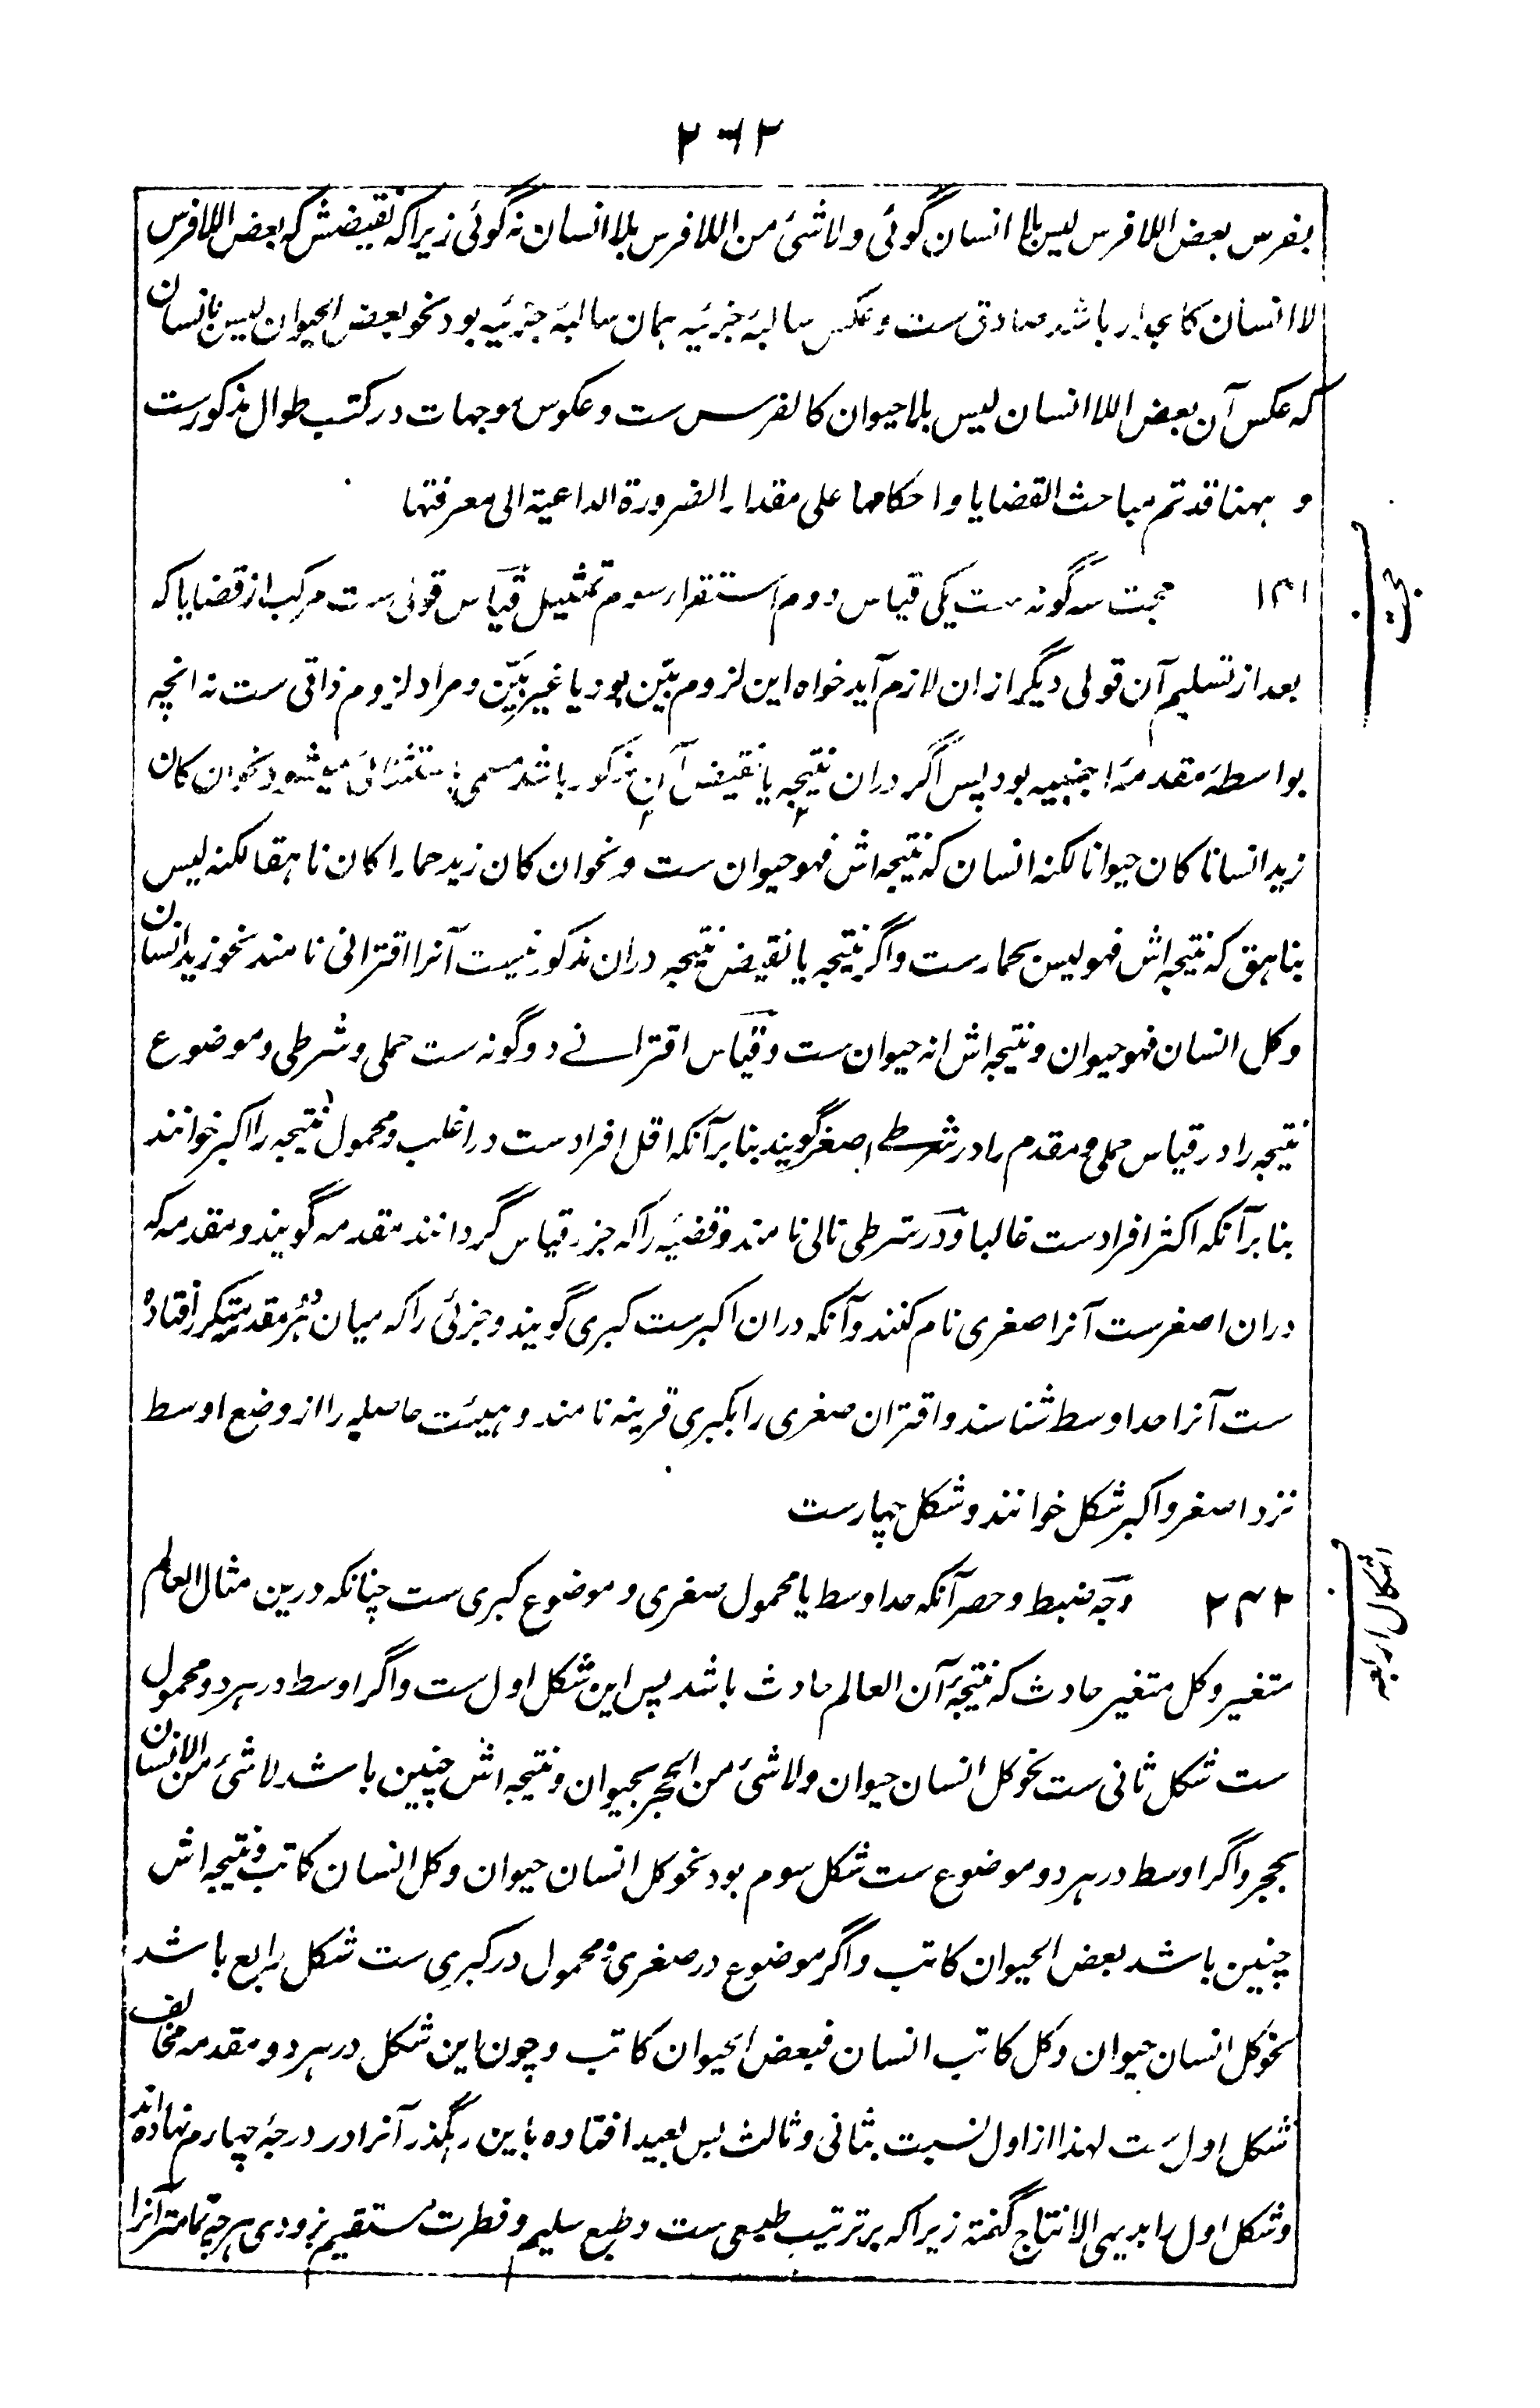 ۲۶۲
بفرس بعض اللافرس لیس بلا انسان گوئی ولا شئ من اللافرس بلا انسان نہ گوئی زیراکہ نقیضش کہ بعض اللافرس
لا انسان کالجدار باشد صادق ست و عکس سالبۂ جزئیہ ہمان سالبۂ جزئیہ بود نحو بعض الحیوان لیس بانسان
کہ عکس آن بعض اللاانسان لیس بلاحیوان کالفرس ست و عکوس موجہات در کتب طوال مذکورست
و ہہنا قد تم مباحث القضایا و احکامہا علی مقدار الضرورة الداعیة الی معرفتہا
حجت
۱۴۱ حجت سہ گونہ ست یکی قیاس دوم استقرار سوم تمثیل قیاس قولی ست مرکب از قضایا کہ
بعد از تسلیم آن قولی دیگر ازان لازم آید خواہ این لزوم بیّن بود یا غیر بیّن و مراد لزوم ذاتی ست نہ انچہ
بواسطۂ مقدمۂ اجنبیہ بود پس اگر دران نتیجہ یا نقیض آن مذکور باشد مسمی باستثنائی میشود نحو ان کان
زید انسانا کان حیوانا لکنہ انسان کہ نتیجہ اش فہو حیوان ست و نحو ان کان زید حمارا کان ناہقا لکنہ لیس
بناہق کہ نتیجہ اش فہو لیس بحمارست و اگر نتیجہ یا نقیض نتیجہ دران مذکور نیست آنرا اقترانی نامند نحو زید انسان
و کل انسان فہو حیوان و نتیجہ اش انہ حیوان ست و قیاس اقترانے دوگونہ ست حملی و شرطی و موضوع
نتیجہ را در قیاس حملی و مقدم را در شرطے اصغر گویند بنابر آنکہ اقل افرادست در اغلب و محمول نتیجہ را اکبر خوانند
بنابر آنکہ اکثر افرادست غالبا و در شرطی تالی نامند و قضیہ را کہ جزر قیاس گردانند مقدمہ گویند و مقدمہ کہ
دران اصغرست آنرا صغری نام کنند و آنکہ دران اکبرست کبری گویند و جزئی را کہ میان ہر دو مقدمہ متکرر افتادہ
ست آنرا حد اوسط شناسند و اقتران صغری را بکبری قرینہ نامند و ہیئت حاصلہ را از وضع اوسط
نزد اصغر و اکبر شکل خوانند و شکل چہارست
اشکال اربعہ
۲۴۲ وجہ ضبط و حصر آنکہ حد اوسط یا محمول صغری و موضوع کبری ست چنانکہ درین مثال العالم
متغیر و کل متغیر حادث کہ نتیجۂ آن العالم حادث باشد پس این شکل اول ست و اگر اوسط در ہر دو محمول
ست شکل ثانی ست نحو کل انسان حیوان و لا شئ من الحجر بحیوان و نتیجہ اش چنین باشد لا شئ من الانسان
بحجر و اگر اوسط در ہر دو موضوع ست شکل سوم بود نحو کل انسان حیوان و کل انسان کاتب و نتیجہ اش
چنین باشد بعض الحیوان کاتب و اگر موضوع در صغری و محمول در کبری ست شکل رابع باشد
نحو کل انسان حیوان و کل کاتب انسان فبعض الحیوان کاتب و چون این شکل در ہر دو مقدمہ مخالف
شکل اول ست لہذا از اول نسبت بثانی و ثالث بس بعید افتادہ باین رہگذر آنرا در درجۂ چہارم نہادہ اند
و شکل اول را بدیہی الانتاج گفتہ زیراکہ بر ترتیب طبیعی ست و طبع سلیم و فطرت مستقیم بزودی ہرچہ تمامتر آنرا